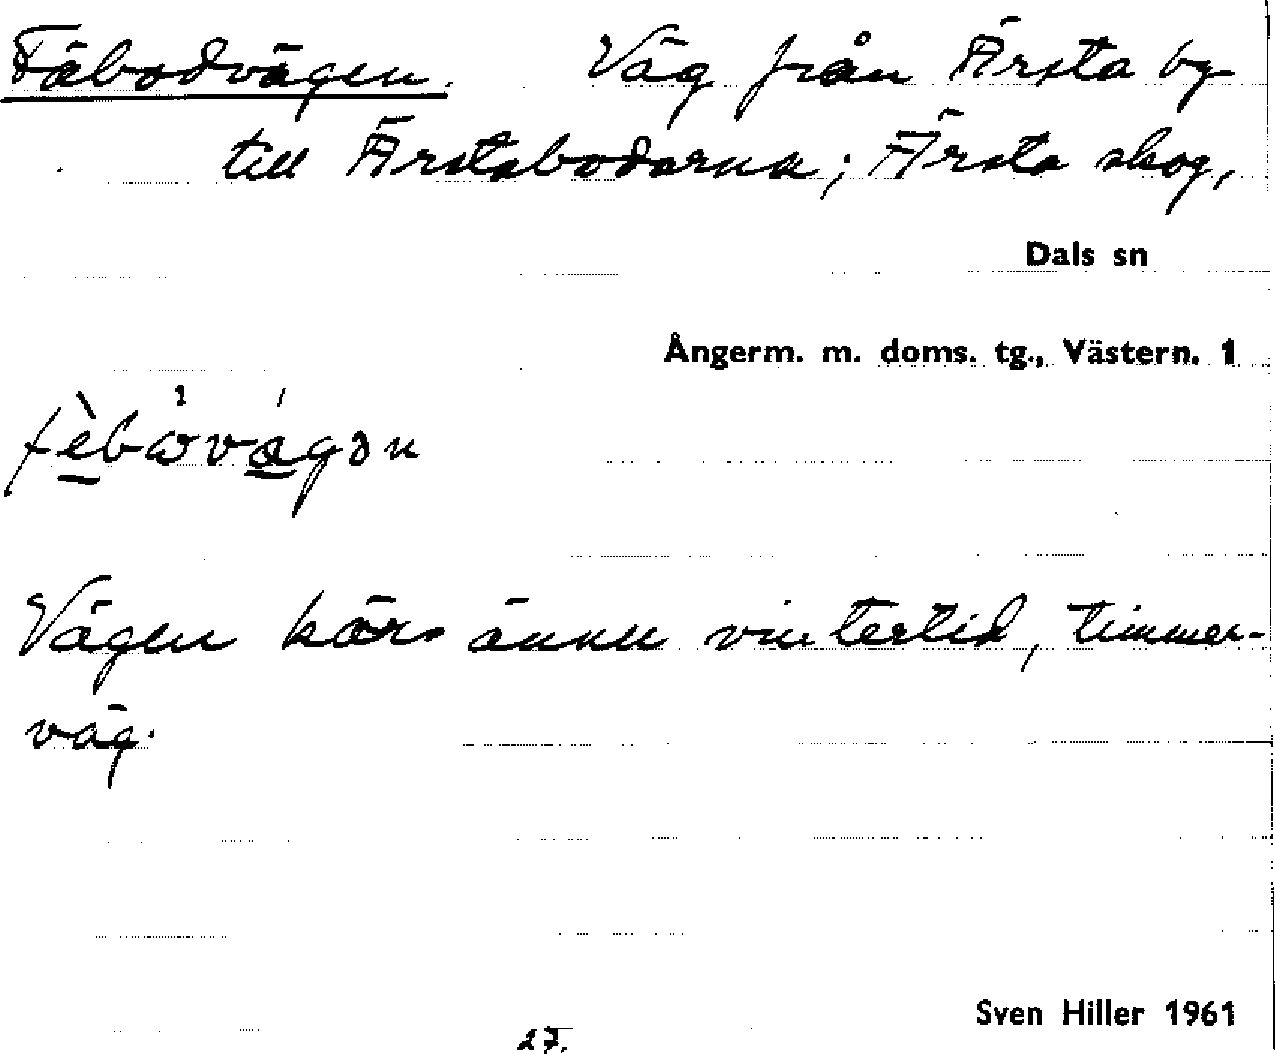 Fäbodvägen. Väg från Ärsta by
till Ärstabodarna; Ärsta skog,
Dals sn
Ångerm. m. doms. tg., Västern. 1
Vägen körs ännu vintertid, timmer-
väg.
Sven Hiller 1961
27.